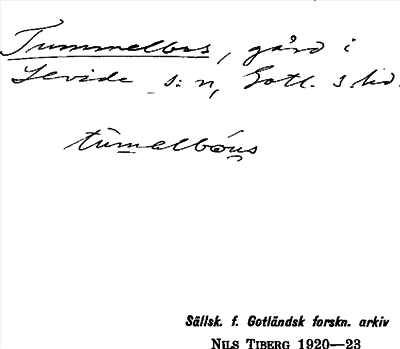 Tummelbos, gård i
Levide s:n, Gotl. s. hd.
tūmelbōus
Sällsk. f. Gotländsk forskn. arkiv
NILS TIBERG 1920—23